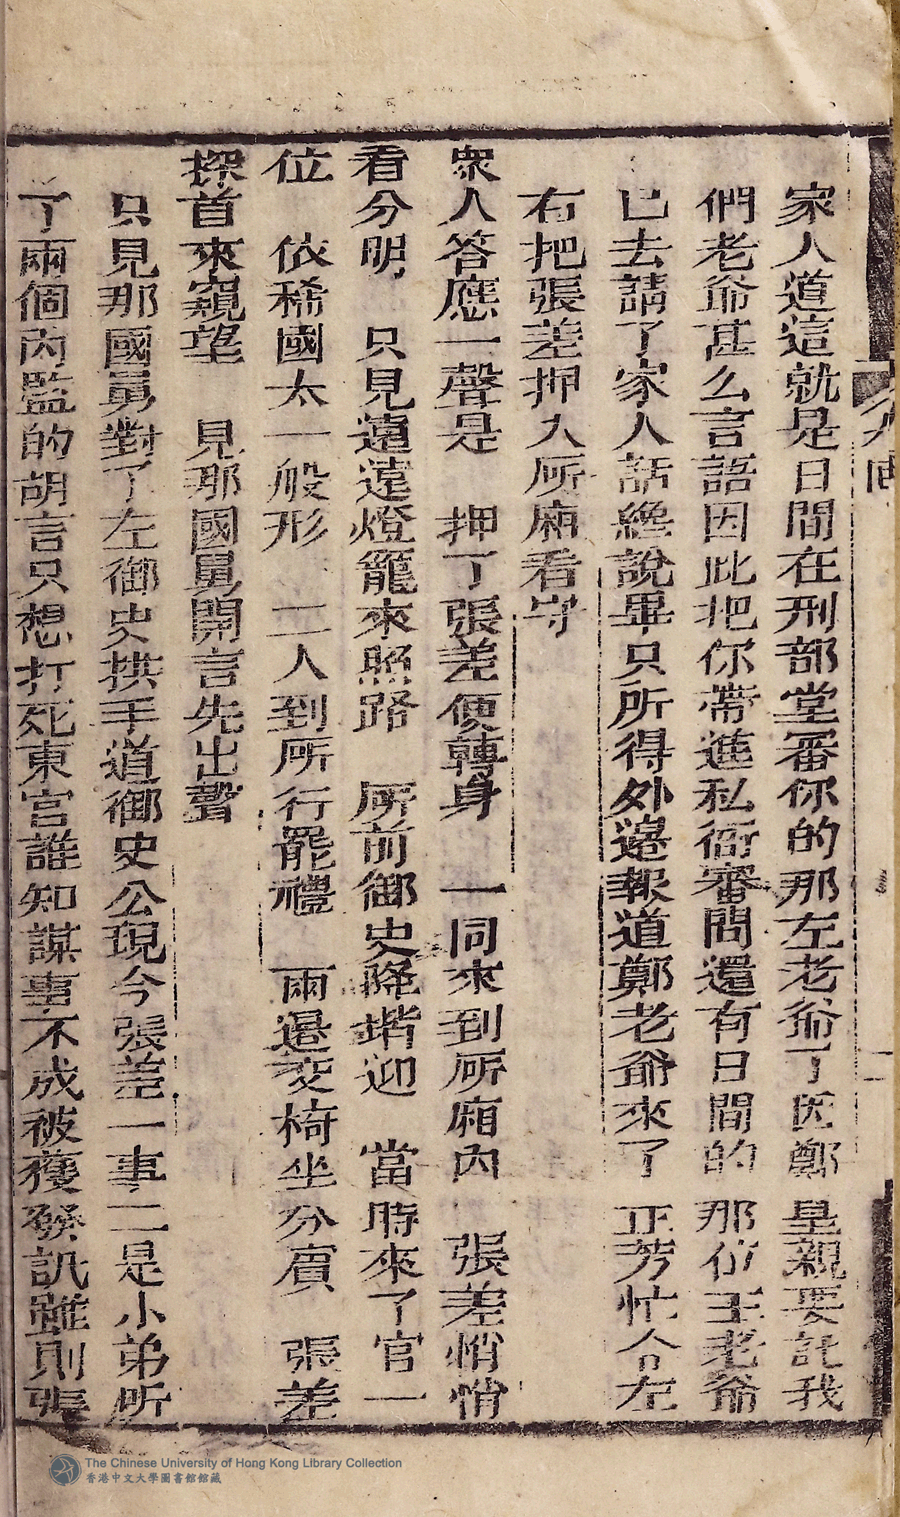 家人道這就是日間在刑部堂審你的那左老爺了因鄭皇親要託我
們老爺甚么言語因此把你帶進私衙審問還有日間的那位王老爺
已去請了家人話總說畢只所得外邉報道鄭老爺來了正芳忙令左
右把張差押入所廂看守
衆人答應一聲是　押了張差便轉身　一同來到所廂內　張差悄悄
看分明　只見遠遠燈籠來照路　所前御史降堦迎　當時來了官一
位　依稀國太一般形　二人到所行罷禮　兩邉交椅坐分賔　張差
探首來窺望　見那國舅開言先出聲
只見那國舅對了左御史拱手道御史公現今張差一事二是小弟所
了兩個內監的胡言只想打死東宮誰知謀事不成被獲發訊雖則張
The Chinese University of Hong Kong Library Collection
香港中文大學圖書館館藏